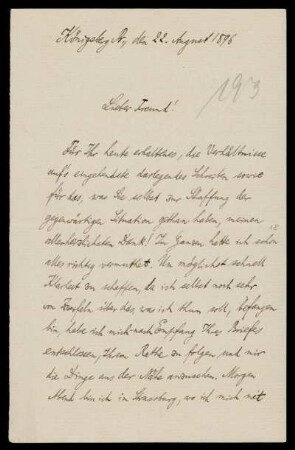 Königsberg Pr, den 22. August 1896
193
Lieber Freund!
Für Ihr heute erhaltenes, die Verhältnisse
aufs eingehendste darlegendes Schreiben sowie
für das, was Sie selbst zur Schaffung der
gegenwärtigen Situation gethan haben, meinen
allerherzlichsten Dank! Im Ganzen hatte ich schon
alles richtig vermuthet. Um möglichst schnell
Klarheit zu schaffen, da ich selbst noch sehr
von Zweifeln über das, was ich thun soll, befangen
bin, habe ich mich nach Empfang Ihres Briefes
entschlossen, Ihrem Rathe zu folgen, und mir
die Dinge aus der Nähe anzusehen. Morgen
Abend bin ich in Strassburg, wo ich mich mit